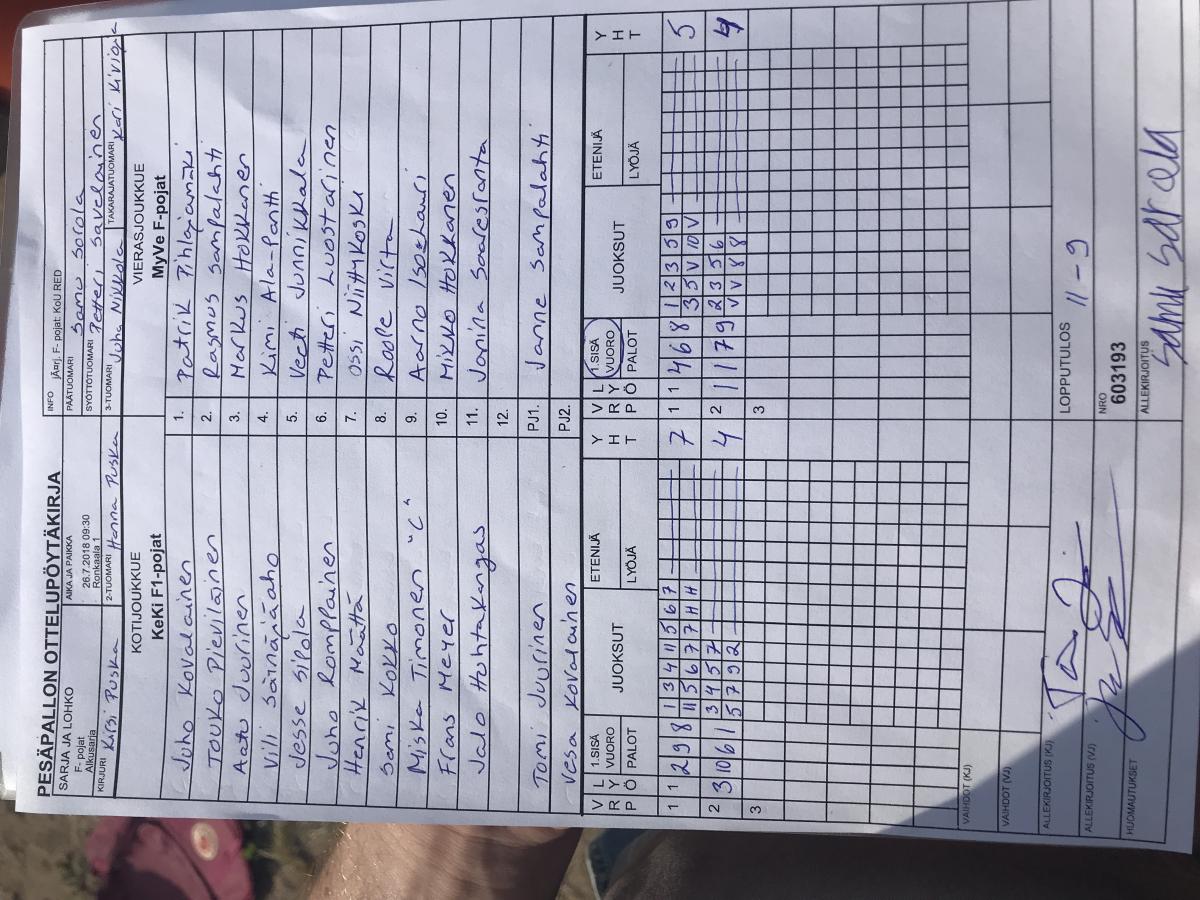 PESÄPALLON OTTELUPÖYTÄKIRJA
INFO jÄ¤rj. F- pojat: KoU RED
SARJA JA LOHKO
F- pojat
Alkusarja
AIKA JA PAIKKA
26.7.2018 09:30
Ronkaala 1
PÄÄTUOMARI Samu Sorola
SYÖTTÖTUOMARI Petteri Savelainen
KIRJURI Kirsi Puska
2-TUOMARI Hanna Puska
3-TUOMARI Juha Nikkola
TAKARAJATUOMARI Kari Kivioja
KOTIJOUKKUE
KeKi F1-pojat
VIERASJOUKKUE
MyVe F-pojat
Juho Kovalainen 1. Patrik Pihlajamäki
Touko Pieviläinen 2. Rasmus Sampalahti
Aatu Juurinen 3. Markus Hokkanen
Vili Säinäpääaho 4. Kimi Ala-Pantti
Jesse Sipola 5. Veeti Junnikkala
Juho Romppainen 6. Petteri Luostarinen
Henrik Määttä 7. Ossi Niittykoski
Sami Kokko 8. Roope Virta
Miska Timonen "C" 9. Aarno Isoehari
Frans Meyer 10. Mikko Hokkanen
Jalo Huhtakangas 11. Janina Saaresranta
12.
Tomi Juurinen PJ1. Janne Sampalahti
Vesa Kovalainen PJ2.
V R P L Y Ö 1.SISÄ VUORO PALOT JUOKSUT ETENIJÄ LYÖJÄ Y H T V R P L Y Ö 1.SISÄ VUORO PALOT JUOKSUT ETENIJÄ LYÖJÄ Y H T
1 1 2 9 8 1 3 4 11 5 6 7 7 1 1 4 6 8 1 2 3 5 9 5
11 5 6 7 7 H H 3 5 V 10 V
2 3 10 6 1 3 4 5 7 4 2 1 1 7 9 2 3 5 6 4
5 7 9 2 V V 8 8
3 3
VAIHDOT (KJ)
VAIHDOT (VJ)
ALLEKIRJOITUS (KJ)
LOPPUTULOS 11-9
ALLEKIRJOITUS (VJ)
NRO
603193
HUOMAUTUKSET
ALLEKIRJOITUS